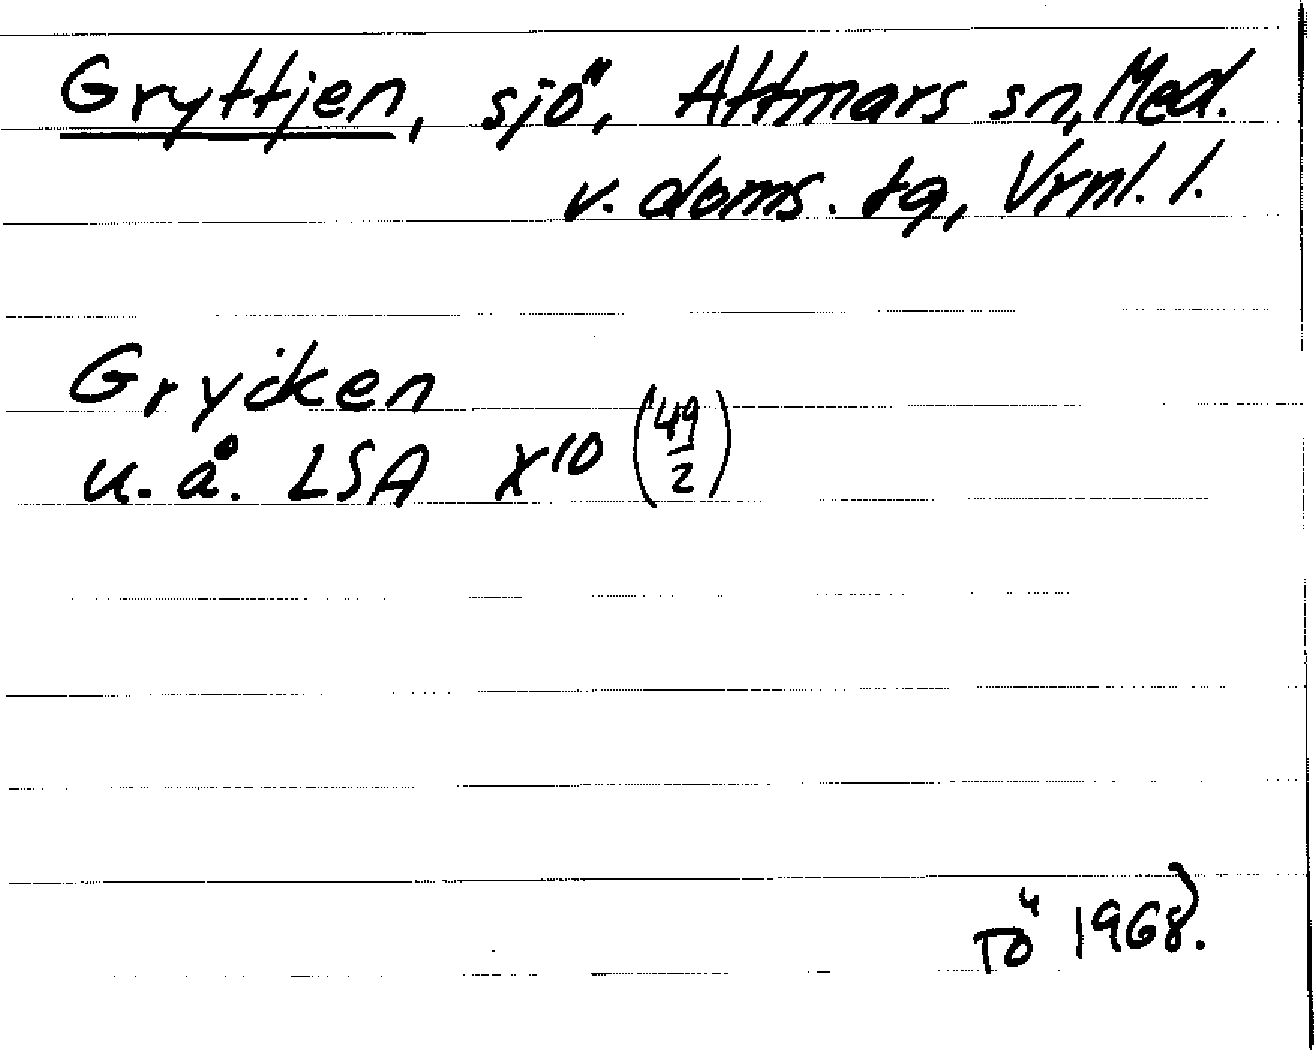 Gryttjen, sjö, Attmars sn, Med.
v. doms. tg, Vrnl. l.
Grycken
u. å. LSA X10 (49/2)
TÖ 1968.